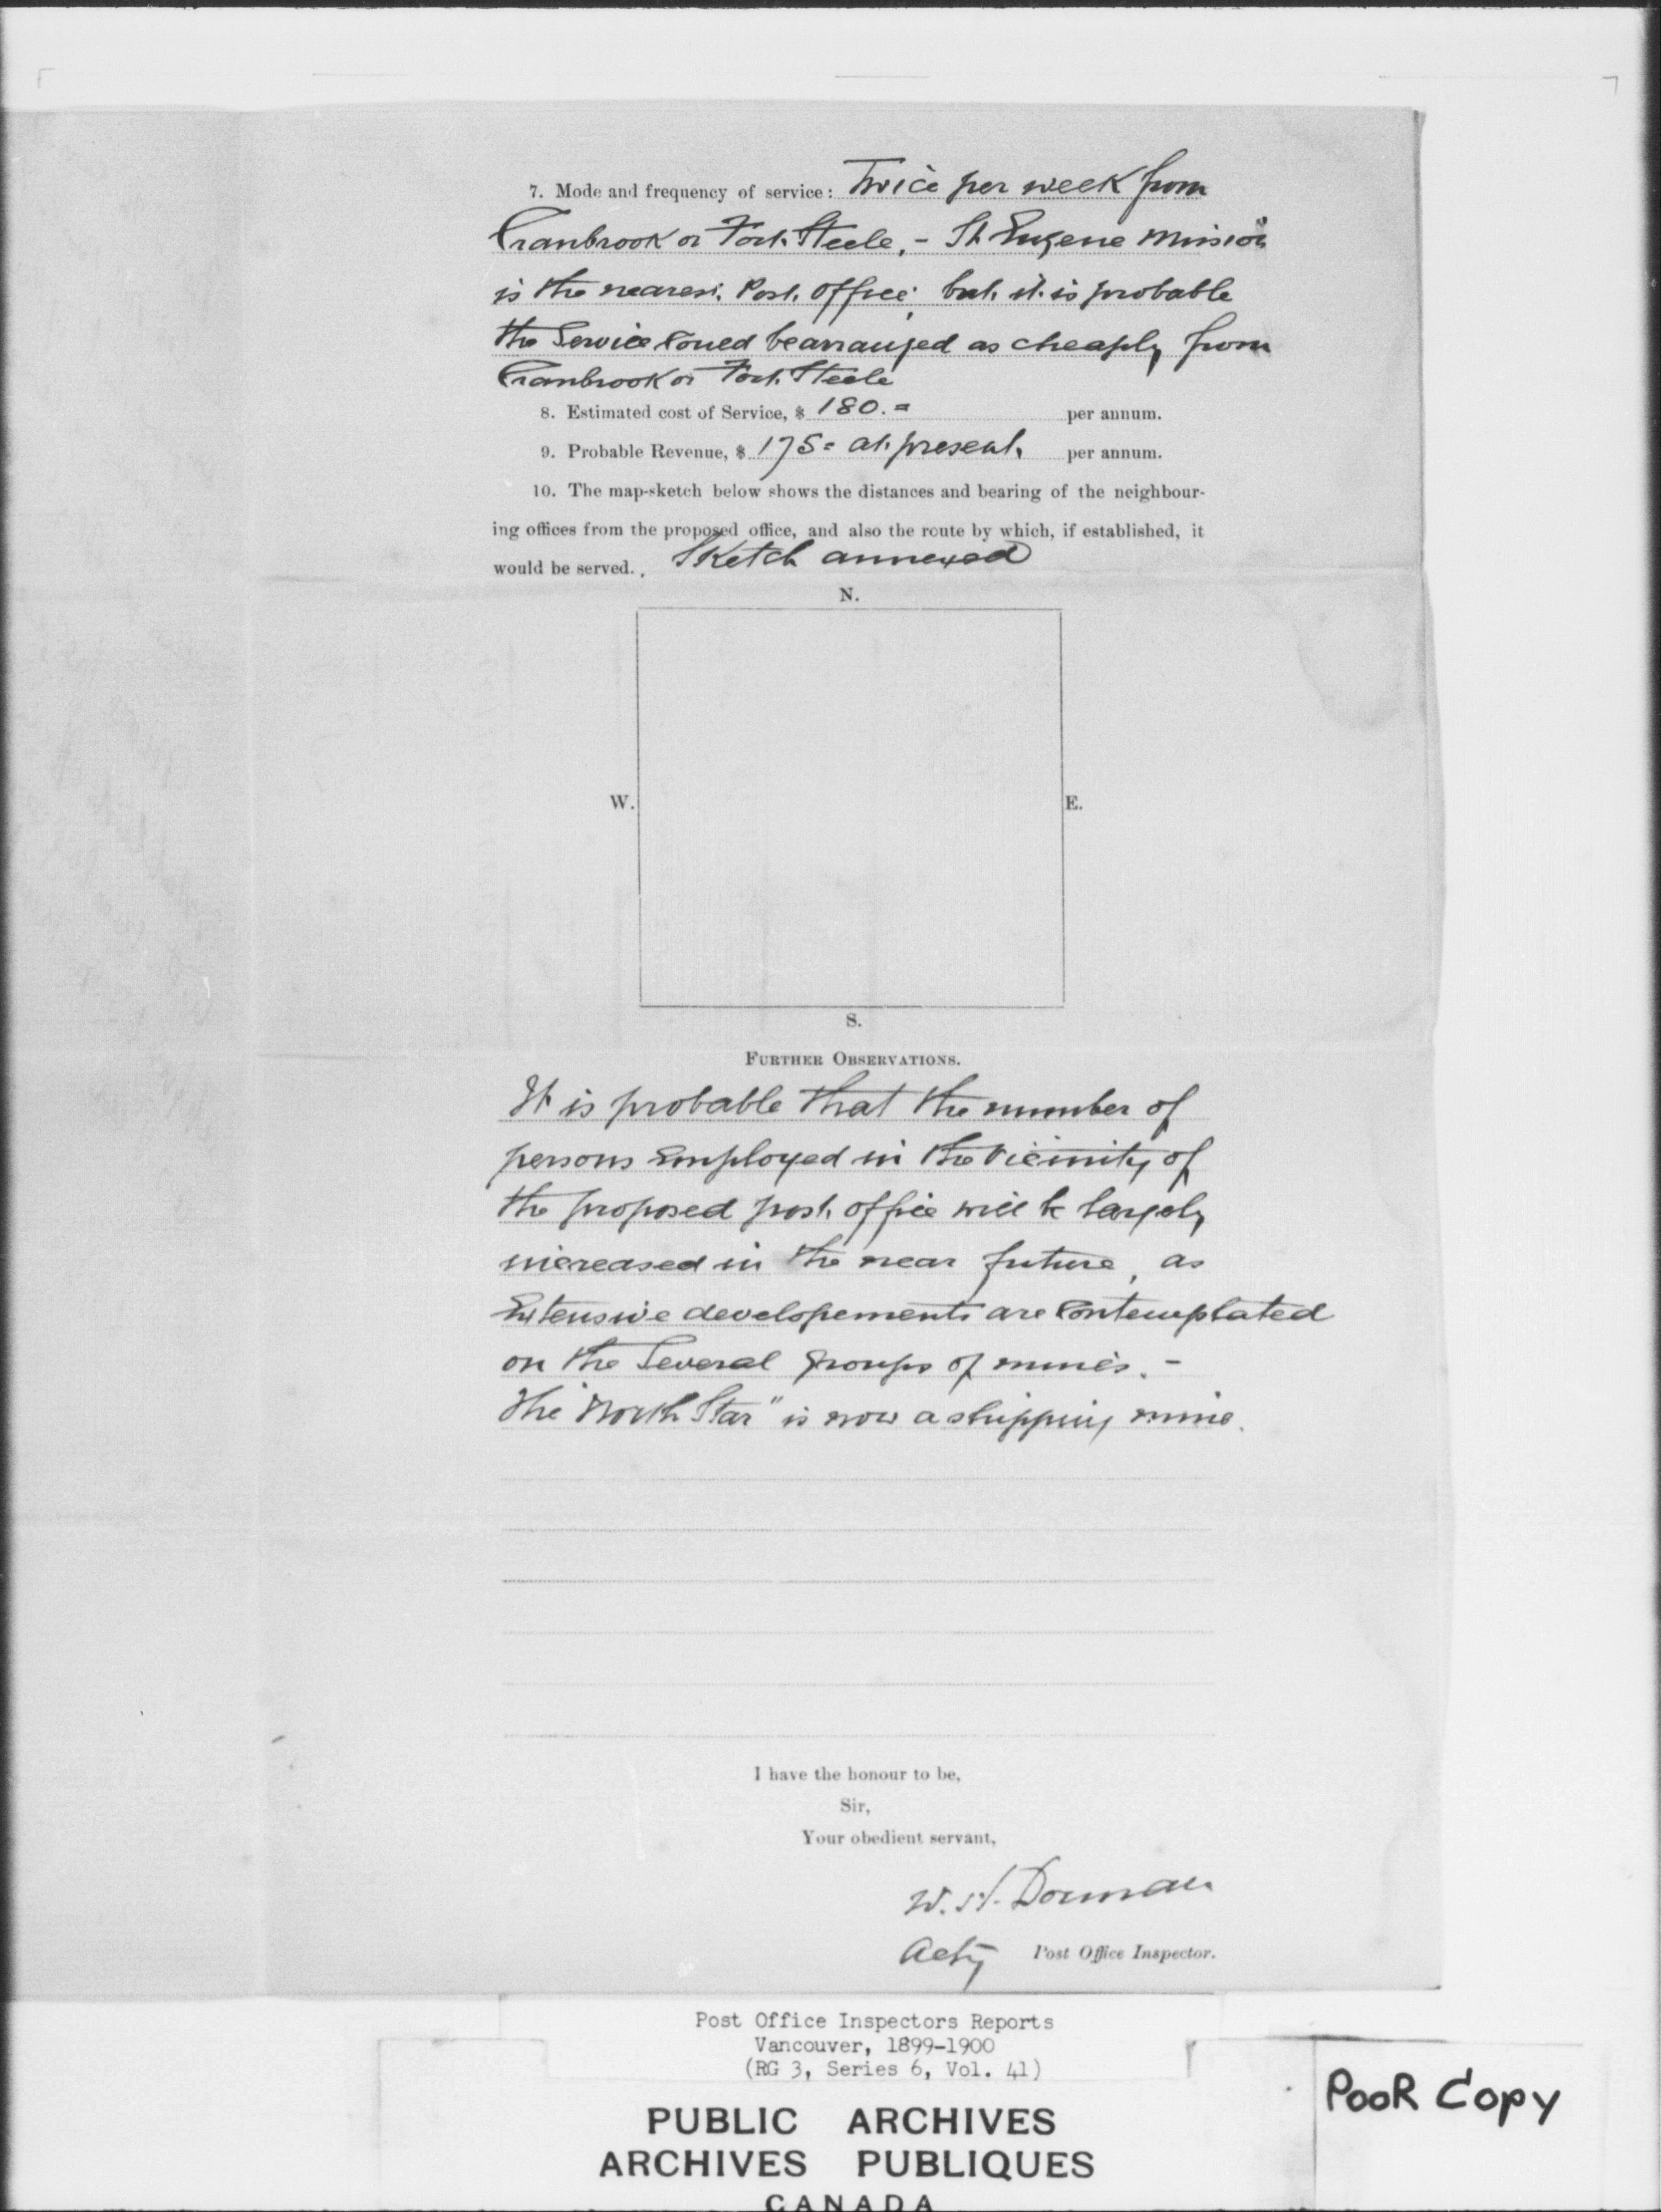 7. Mode and frequency of service: Twice per week from
Cranbrook or Fort Steele, - St Eugene Mission
is the nearest Post office; but it is probable
the Service could be arranged as cheaply from
Cranbrook or Fort Steele
8. Estimated cost of Service, $ 180.= per annum.
9. Probable Revenue, $ 175= at present. per annum.
10. The map-sketch below shows the distances and bearing of the neighbour-
ing offices from the proposed office, and also the route by which, if established, it
would be served. Sketch annexed
N.
W. E.
S.
FURTHER OBSERVATIONS.
It is probable that the number of
persons employed in the vicinity of
the proposed post office will be largely
increased in the near future, as
Extensive developements are contemplated
on the several groups of mines. -
The "North Star" is now a shipping mine.
I have the honour to be,
Sir,
Your obedient servant,
W. H. Dorman
Actg Post Office Inspector.
Post Office Inspectors Reports
Vancouver, 1899-1900
(RG 3, Series 6, Vol. 41)
PUBLIC ARCHIVES
ARCHIVES PUBLIQUES
CANADA
POOR COPY